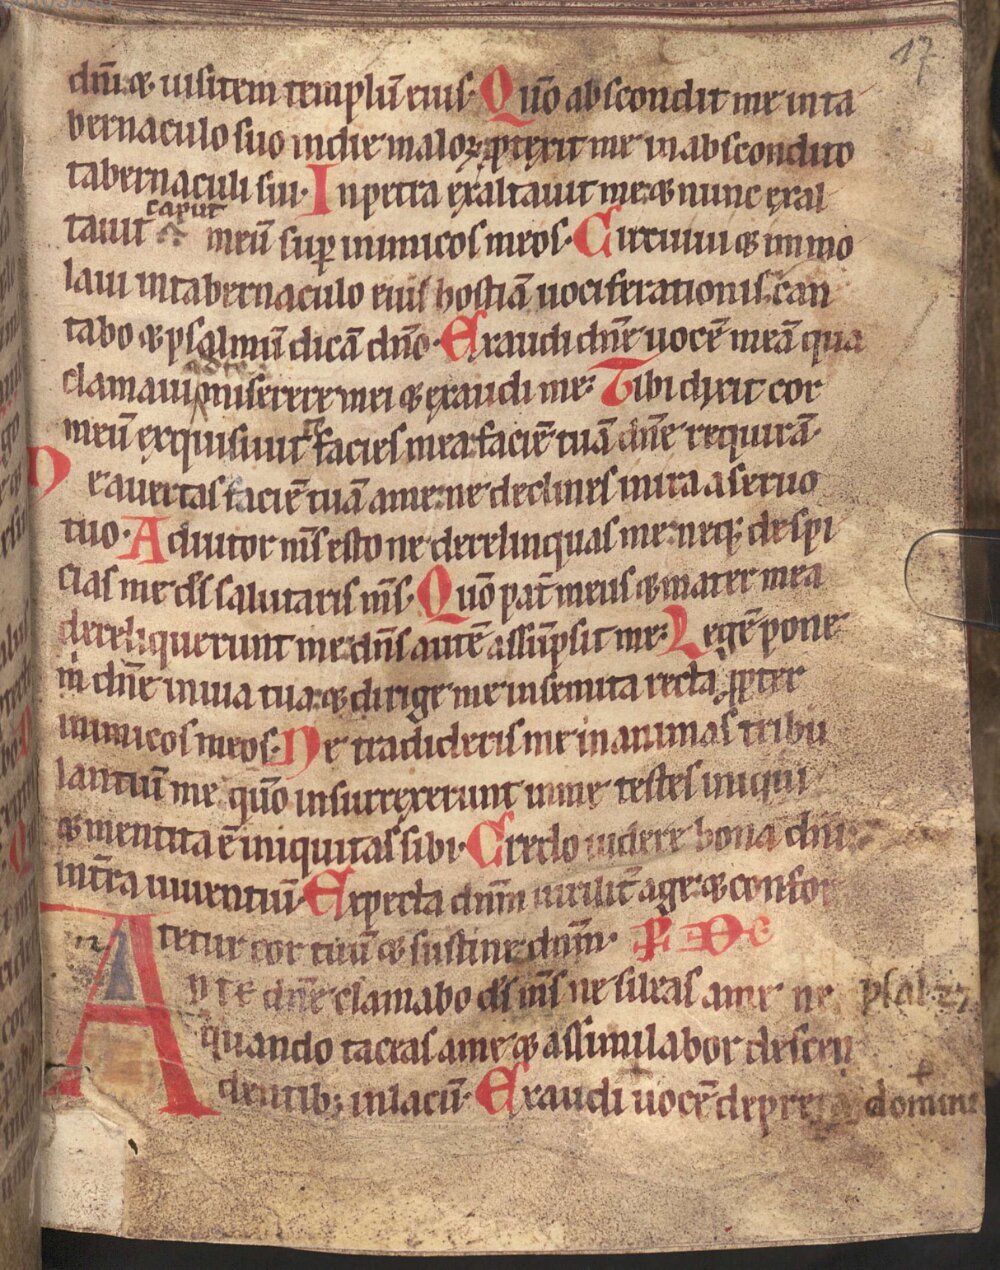 17
dñi ⁊ uisitem templū eius· Quō abscondit me in ta
bernaculo suo in die maloꝝ ꝓtexit me in abscondito
tabernaculi sui· In petra exaltauit me ⁊ nunc exal
caput
tauit meū suꝑ inimicos meos· Circuiui ⁊ immo
laui in tabernaculo eius hostiā uociferationis can
tabo ⁊ psalmū dicā dn̄o· Exaudi dn̄e uocē meā qua
ad te
clamaui miserere mei ⁊ exaudi me· Tibi dixit cor
meū exquisiuit te facies mea faciē tuā dn̄e requirā·
Ne auertas faciē tuā a me ne declines in ira a seruo
tuo· Adiutor m̄s esto ne derelinquas me neqꝫ despi
cias me ds̄ salutaris m̄s· Quō pat̄ meus ⁊ mater mea
dereliquerunt me dn̄s autē assūpsit me· Legē pone
m̄ dn̄e in uia tua ⁊ dirige me in semita recta ꝓpter
inimicos meos· Ne tradideris me in animas tribu
lantiū me quō insurrexerunt in me testes iniqui
⁊ mentita ē iniquitas sibi· Credo uidere bona dn̄i
in tr̄a uiuentiū· Expecta dn̄m uirilit̄ age ⁊ confor
tetur cor tuū ⁊ sustine dn̄m·
Ad te dn̄e clamabo ds̄ m̄s ne sileas a me ne psal. 27
quando taceas a me ⁊ assimilabor descen
dentibꝫ in lacū· Exaudi uocē depre domine